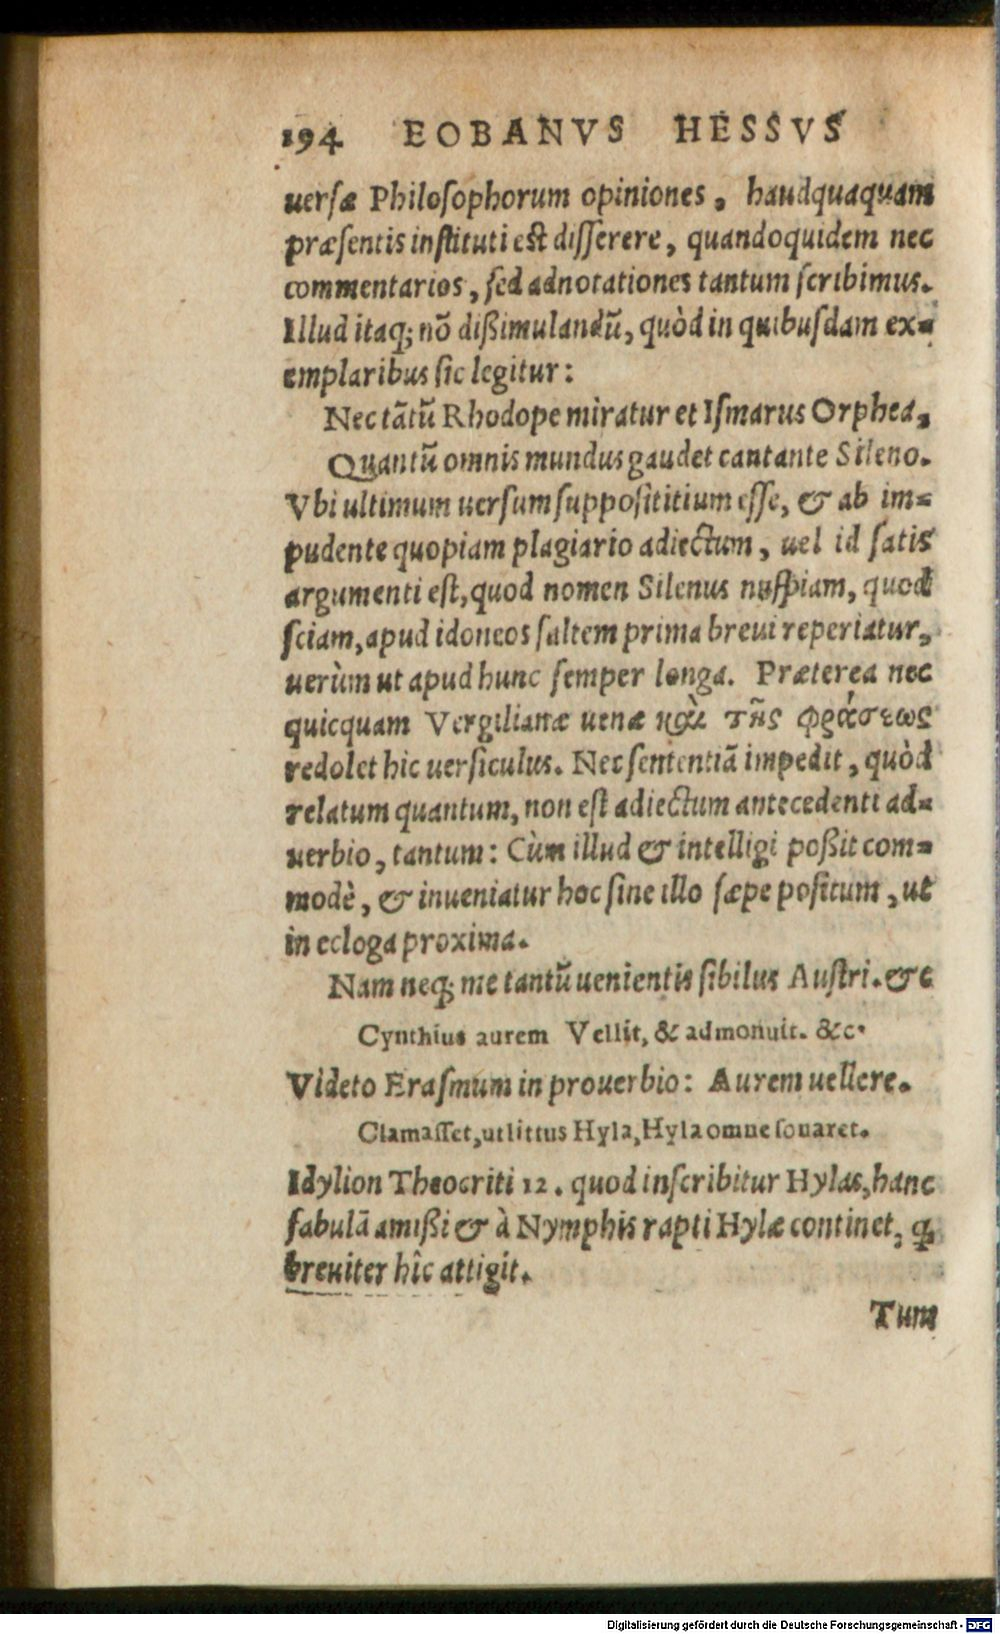 194 EOBANVS HESSVS
uerſæ Philoſophorum opiniones, haudquaquam
præſentis inſtituti eſt diſſerere, quandoquidem nec
commentarios, ſed adnotationes tantum ſcribimus.
Illud itaq; nõ dißimulandũ, quòd in quibuſdam ex=
emplaribus ſic legitur:
Nec tãtũ Rhodope miratur et Iſmarus Orphea,
Quantũ omnis mundus gaudet cantante Sileno.
Vbi ultimum uerſum ſuppoſititium eſſe, & ab im=
pudente quopiam plagiario adiectum, uel id ſatis
argumenti eſt, quod nomen Silenus nuſpiam, quod
ſciam, apud idoneos ſaltem prima breui reperiatur,
uerùm ut apud hunc ſemper longa. Præterea nec
quicquam Vergilianæ uenæ καὶ τῆς φράσεως
redolet hic uerſiculus. Nec ſententiã impedit, quòd
relatum quantum, non eſt adiectum antecedenti ad=
uerbio, tantum: Cùm illud & intelligi poßit com=
modè, & inueniatur hoc ſine illo ſæpe poſitum, ut
in ecloga proxima.
Nam neq; me tantũ uenientis ſibilus Auſtri. &c
Cynthius aurem Vellit, & admonuit. &c.
Videto Eraſmum in prouerbio: Aurem uellere.
Clamaſſet, ut littus Hyla, Hyla omne ſonaret.
Idylion Theocriti 12. quod inſcribitur Hylas, hanc
fabulã amißi & à Nymphis rapti Hylæ continet, q̃
breuiter hîc attigit.
Tum
Digitalisierung gefördert durch die Deutsche Forschungsgemeinschaft - DFG